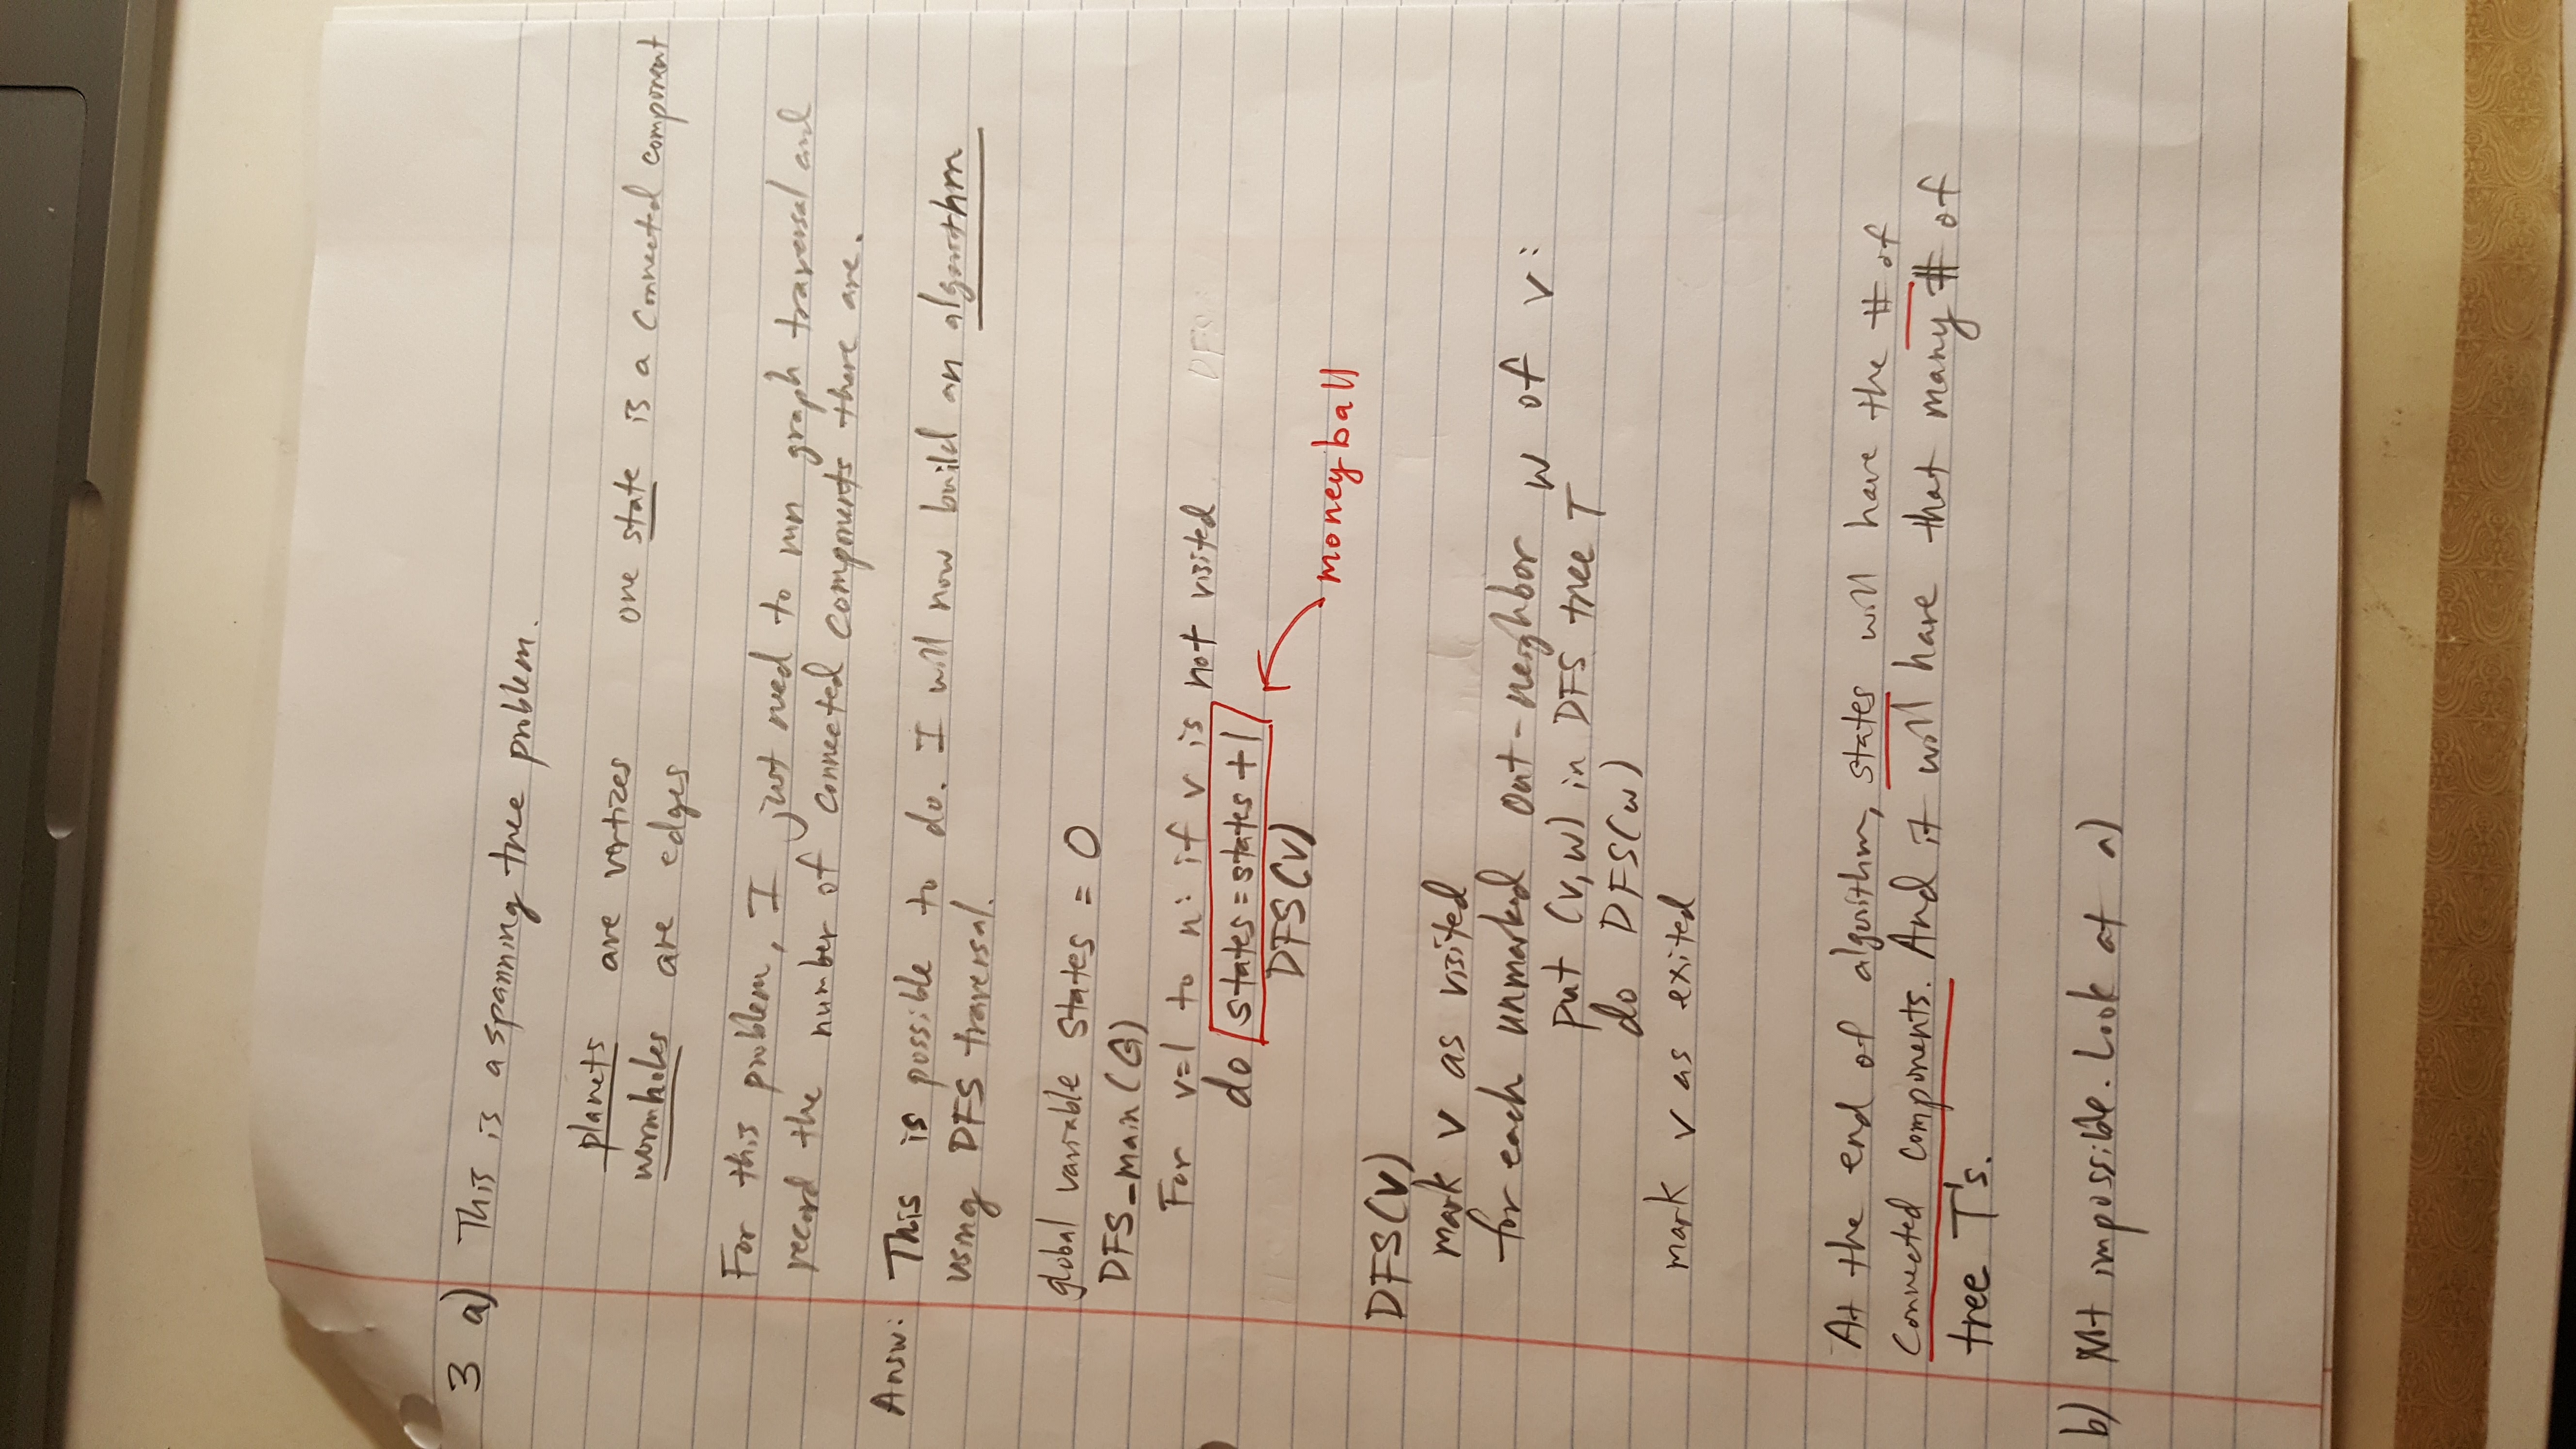 3 a) This is a spanning tree problem.
planets are vertizes one state is a connected component
wormholes are edges
For this problem, I just need to run graph traversal and
record the number of connected components there are.
Answ: This is possible to do. I will now build an algorithm
using DFS traversal.
global variable states = 0
DFS_main(G)
For v=1 to n: if v is not visited
do states = states + 1
DFS(v)
moneyball
DFS(v)
mark v as visited
for each unmarked out-neighbor w of v:
put (v,w) in DFS tree T
do DFS(w)
mark v as exited
At the end of algorithm, states will have the # of
connected components. And it will have that many # of
tree T's.
b) Not impossible. Look at a)